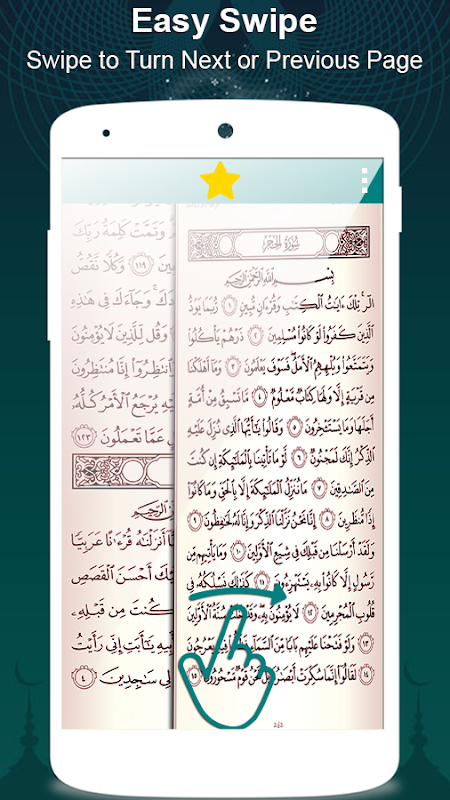 Easy Swipe
Swipe to Turn Next or Previous Page
سُورَةُ الحِجْرِ
بِسْمِ ٱللَّهِ ٱلرَّحْمَٰنِ ٱلرَّحِيمِ
الٓر تِلْكَ ءَايَٰتُ ٱلْكِتَٰبِ وَقُرْءَانٍ مُّبِينٍ ١ رُّبَمَا يَوَدُّ
ٱلَّذِينَ كَفَرُوا۟ لَوْ كَانُوا۟ مُسْلِمِينَ ٢ ذَرْهُمْ يَأْكُلُوا۟
وَيَتَمَتَّعُوا۟ وَيُلْهِهِمُ ٱلْأَمَلُ فَسَوْفَ يَعْلَمُونَ ٣ وَمَآ أَهْلَكْنَا
مِن قَرْيَةٍ إِلَّا وَلَهَا كِتَابٌ مَّعْلُومٌ ٤ مَّا تَسْبِقُ مِنْ أُمَّةٍ
أَجَلَهَا وَمَا يَسْتَـْٔخِرُونَ ٥ وَقَالُوا۟ يَٰٓأَيُّهَا ٱلَّذِى نُزِّلَ عَلَيْهِ
ٱلذِّكْرُ إِنَّكَ لَمَجْنُونٌ ٦ لَّوْ مَا تَأْتِينَا بِٱلْمَلَٰٓئِكَةِ إِن كُنتَ
مِنَ ٱلصَّٰدِقِينَ ٧ مَا نُنَزِّلُ ٱلْمَلَٰٓئِكَةَ إِلَّا بِٱلْحَقِّ وَمَا كَانُوٓا۟
إِذًا مُّنظَرِينَ ٨ إِنَّا نَحْنُ نَزَّلْنَا ٱلذِّكْرَ وَإِنَّا لَهُۥ لَحَٰفِظُونَ ٩
وَلَقَدْ أَرْسَلْنَا مِن قَبْلِكَ فِى شِيَعِ ٱلْأَوَّلِينَ ١٠ وَمَا يَأْتِيهِم مِّن
رَّسُولٍ إِلَّا كَانُوا۟ بِهِۦ يَسْتَهْزِءُونَ ١١ كَذَٰلِكَ نَسْلُكُهُۥ فِى
قُلُوبِ ٱلْمُجْرِمِينَ ١٢ لَا يُؤْمِنُونَ بِهِۦ وَقَدْ خَلَتْ سُنَّةُ ٱلْأَوَّلِينَ
١٣ وَلَوْ فَتَحْنَا عَلَيْهِم بَابًا مِّنَ ٱلسَّمَآءِ فَظَلُّوا۟ فِيهِ يَعْرُجُونَ
١٤ لَقَالُوٓا۟ إِنَّمَا سُكِّرَتْ أَبْصَٰرُنَا بَلْ نَحْنُ قَوْمٌ مَّسْحُورُونَ ١٥
وَتَمَّتْ كَلِمَةُ رَبِّكَ
١١٩ وَكُلًّا نَّقُصُّ
وَجَآءَكَ فِى هَٰذِهِ
وَقُل لِّلَّذِينَ لَا يُؤْمِنُونَ
وَٱنتَظِرُوٓا۟ إِنَّا مُنتَظِرُونَ
يُرْجَعُ ٱلْأَمْرُ كُلُّهُۥ
عَمَّا تَعْمَلُونَ ١٢٣
ٱلرَّحِيمِ
أَنزَلْنَٰهُ قُرْءَٰنًا عَرَبِيًّا
عَلَيْكَ أَحْسَنَ ٱلْقَصَصِ
كُنتَ مِن قَبْلِهِۦ
يَٰٓأَبَتِ إِنِّى رَأَيْتُ
لِى سَٰجِدِينَ ٤